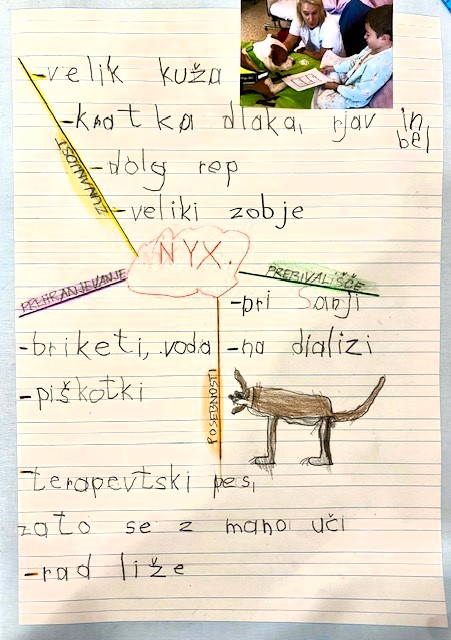 -velik kuža
-kratka dlaka, rjav in
bel
-dolg rep
ZUNANJOST
-veliki zobje
NYX.
PREHRANJEVANJE
PREBIVALIŠČE
-pri Sanji
-briketi, voda
-na dializi
-piškotki
POSEBNOSTI
terapevtski pes,
zato se z mano uči
-rad liže